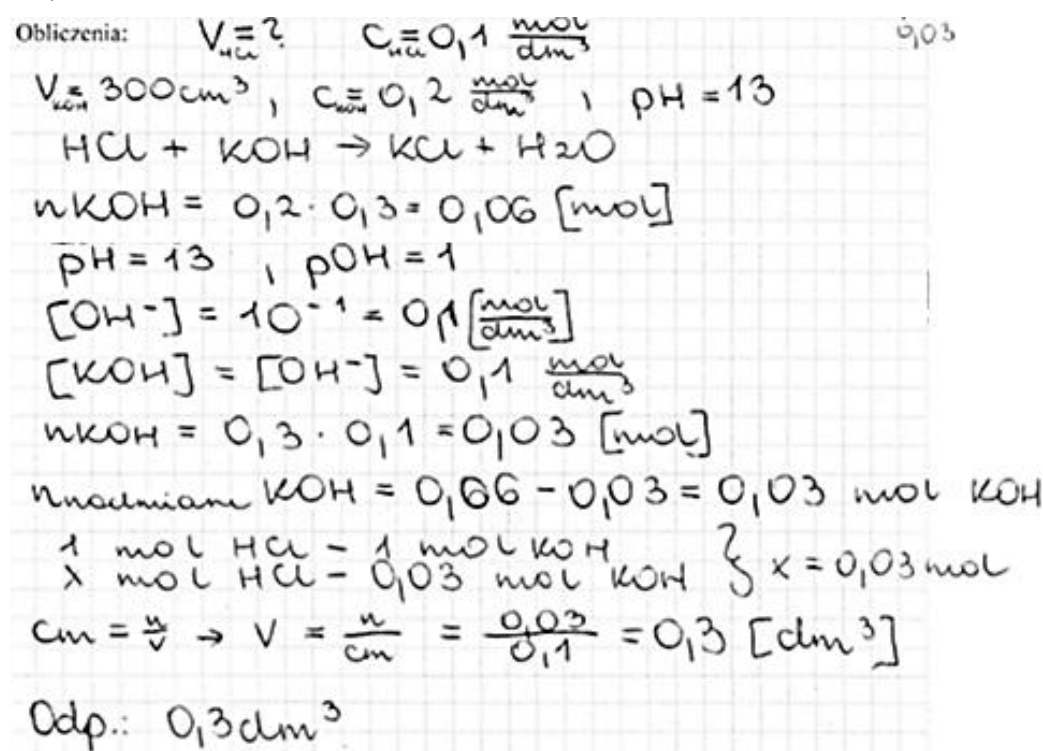 Obliczenia: V_HCl = ? C_HCl = 0,1 mol/dm³ 0,03
V_KOH = 300 cm³, C_KOH = 0,2 mol/dm³, pH = 13
HCl + KOH → KCl + H2O
nKOH = 0,2 · 0,3 = 0,06 [mol]
pH = 13, pOH = 1
[OH⁻] = 10⁻¹ = 0,1 [mol/dm³]
[KOH] = [OH⁻] = 0,1 mol/dm³
nKOH = 0,3 · 0,1 = 0,03 [mol]
n nadmiaru KOH = 0,06 - 0,03 = 0,03 mol KOH
1 mol HCl - 1 mol KOH
x mol HCl - 0,03 mol KOH } x = 0,03 mol
cm = n/v → V = n/cm = 0,03/0,1 = 0,3 [dm³]
Odp.: 0,3 dm³